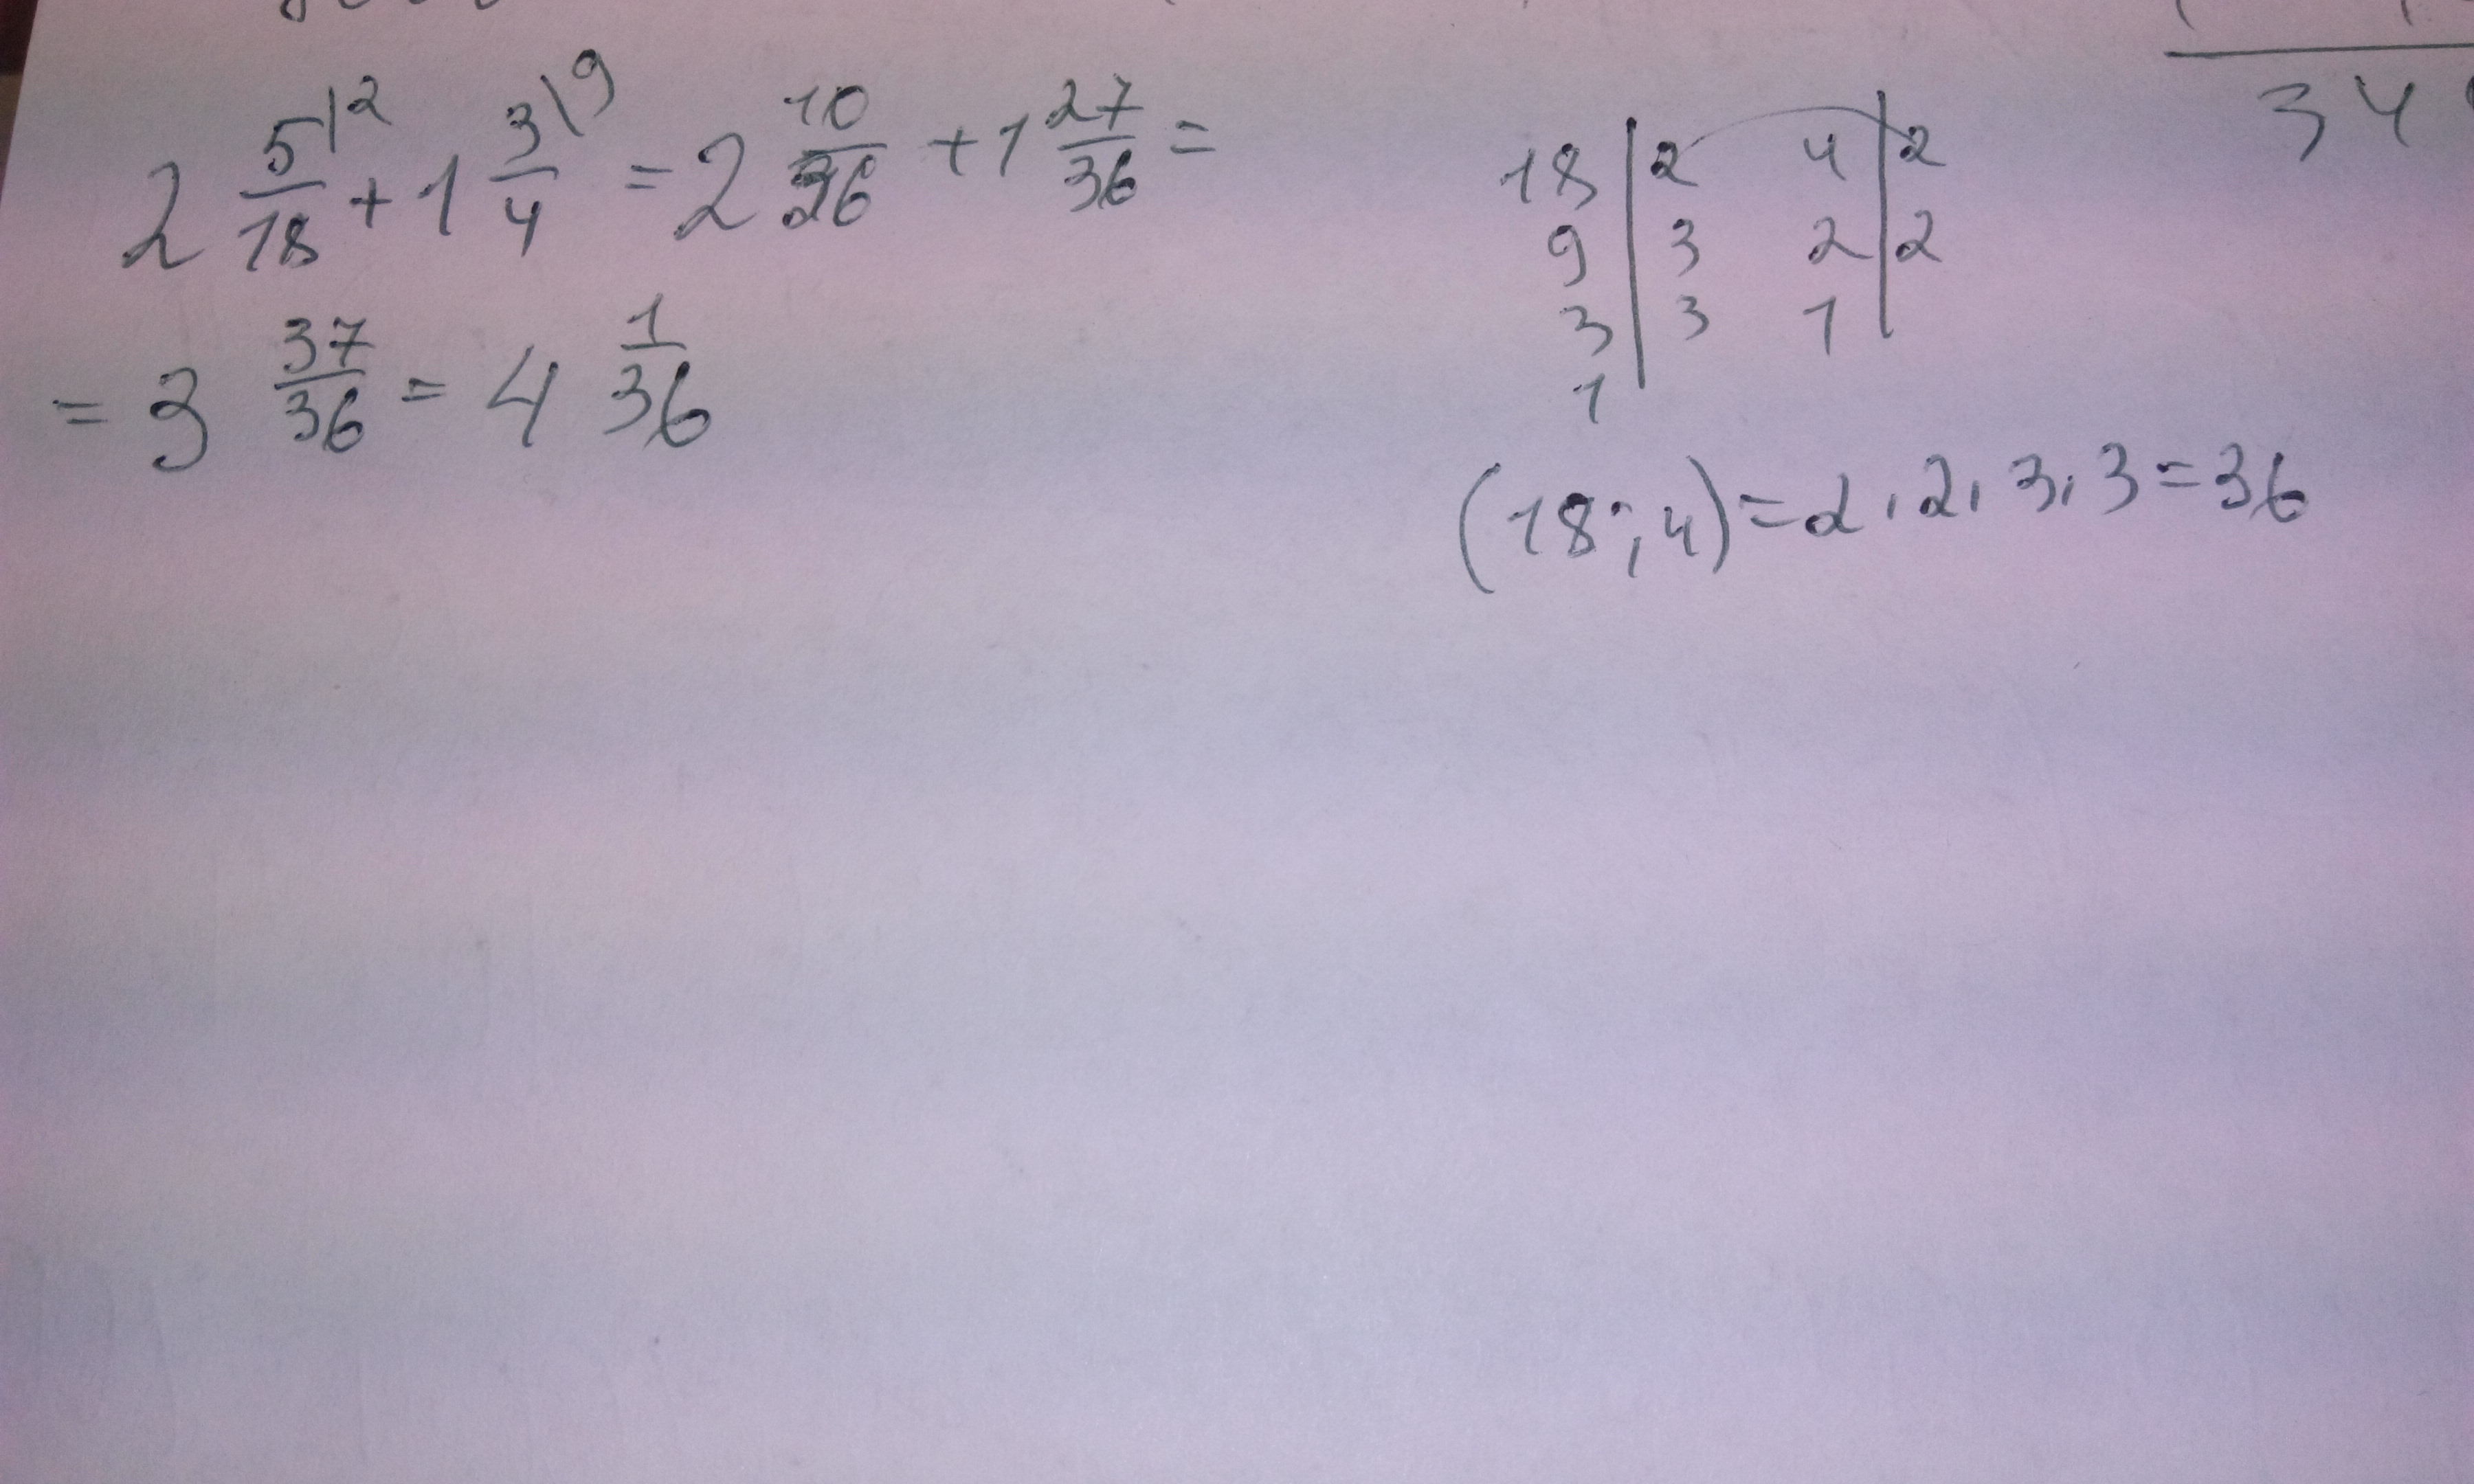 2 5/18 |2 + 1 3/4 \9 = 2 10/36 + 1 27/36 =
= 3 37/36 = 4 1/36
34
18 | 2 4 | 2
9 | 3 2 | 2
3 | 3 1 |
1 |
(18;4)=2.2.3.3=36